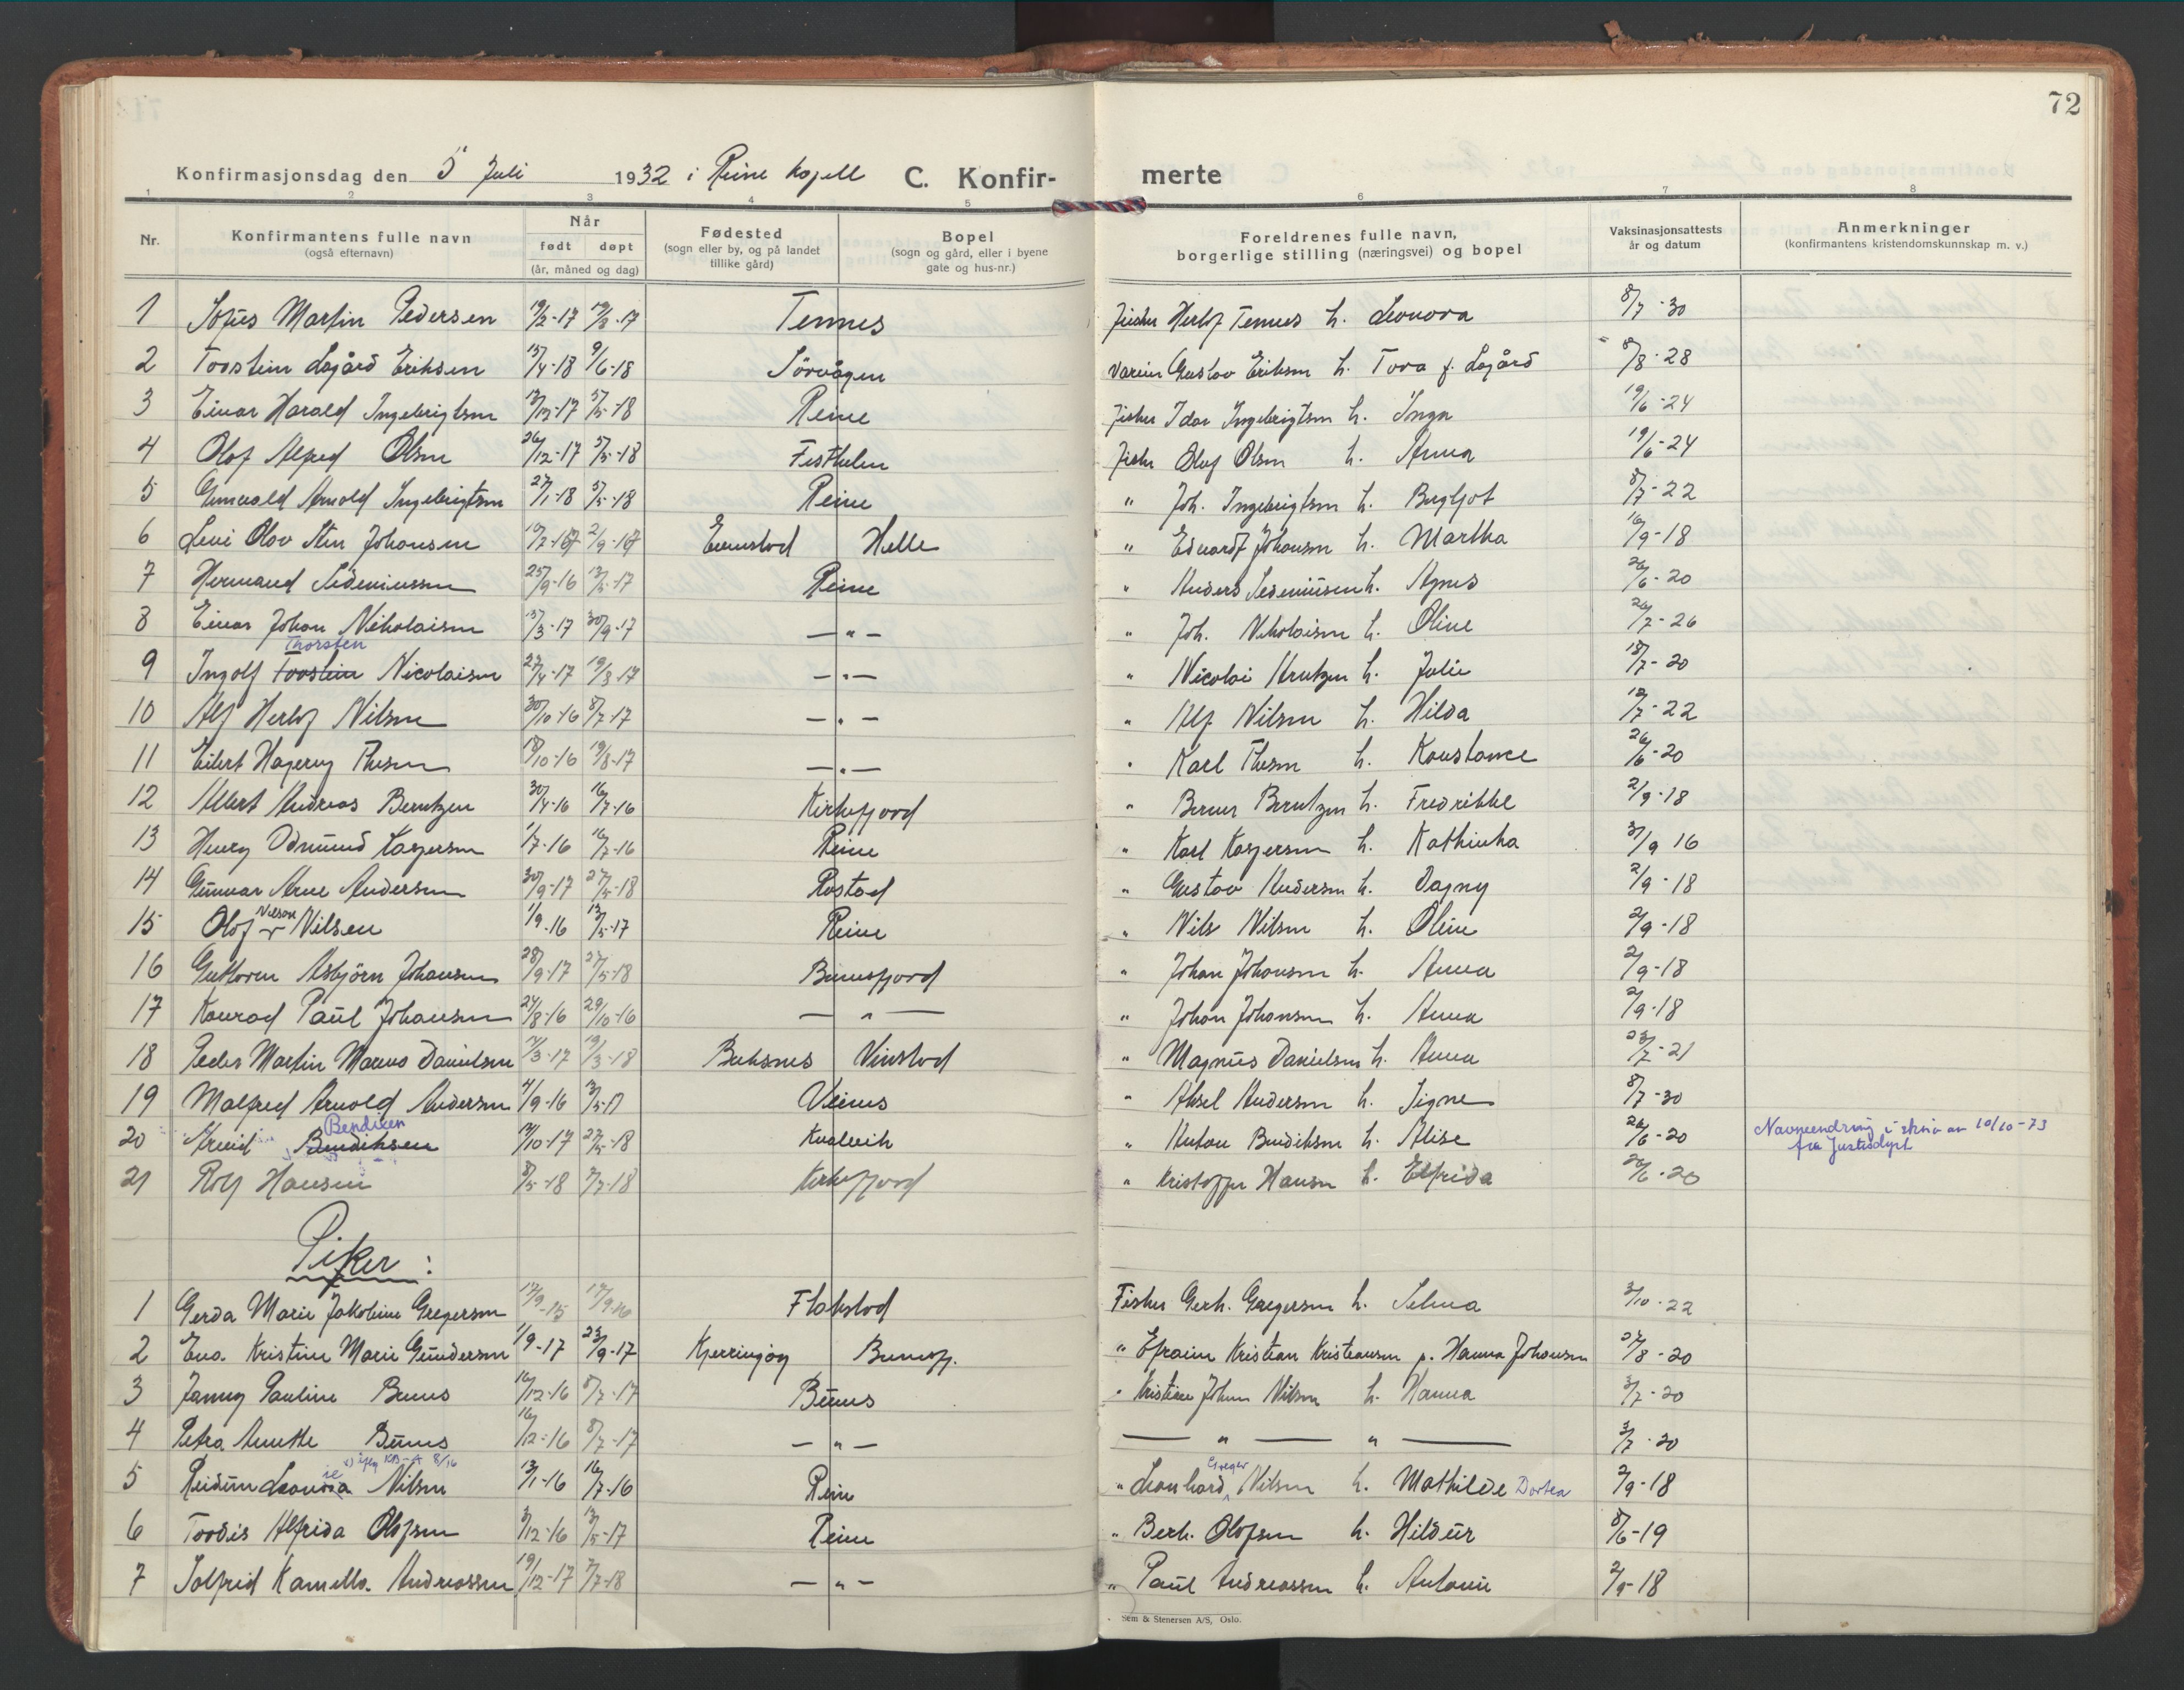 72
Konfirmasjonsdag den 5 Juli 1932 i Reine Kapell C. Konfir- merte
1 2 3 4 5 6 7 8
Nr. Konfirmantens fulle navn (også efternavn) Når født døpt (år, måned og dag) Fødested (sogn eller by, og på landet tillike gård) Bopel (sogn og gård, eller i byene gate og hus-nr.) Foreldrenes fulle navn, borgerlige stilling (næringsvei) og bopel Vaksinasjonsattests år og datum Anmerkninger (konfirmantens kristendomskunnskap m. v.)
1 Sofus Martin Pedersen 19/2-17 Tennes Fisker Herlof Tennes h. Leonora 8/7-30
2 Torstein Logård Eriksen 15/4-18 9/6-18 Sörvågen Gustav Eriksen h. Tora f. Logård 8/8-28
3 Einar Harald Ingebrigtsen 13/12-17 5/5-18 Reine Fisker Idar Ingebrigtsen h. Inga 19/6-24
4 Olof Alfred Olsen 26/12-17 5/5-18 Festhelen Fisker Oluf Olsen h. Anna 19/6-24
5 Gunvald Arnold Ingebrigtsen 27/1-18 5/5-18 Reine " Joh. Ingebrigtsen h. Bergljot 8/7-22
6 Levi Olav Sten Johansen 2/9-17 Helle " Edvard Johansen h. Martha 16/9-18
7 Hermand Sedeniussen 25/9-16 13/5-17 Reine " Anders Sedeniusen h. Agnes 26/6-20
8 Einar Johan Nikolaisen 15/3-17 30/9-17 — " — " Joh. Nikolaisen h. Oline 26/7-26
Thorsten
9 Ingolf Torstein Nicolaisen 27/4-17 19/8-17 — " — " Nicolai Arntzen h. Julie 18/7-20
10 Alf Herlof Nilsen 30/10-16 8/7-17 — " — " Alf Nilsen h. Hilda 12/7-22
11 Eilert Hagerup Thesen 18/10-16 19/8-17 — " — " Karl Thesen h. Konstance 26/6-20
12 Albert Andreas Berntzen 30/4-16 16/7-16 Kirkefjord " Berner Berntzen h. Fredrikke 2/9-18
13 Henry Odmund Kaspersen 1/7-16 16/7-16 Reine " Karl Kaspersen h. Kathinka 3/9 16
14 Gunnar Arne Andersen 30/9-17 27/5-18 Rostad " Gustav Andersen h. Dagny 2/9-18
15 Olof Nelson Nilsen 1/9-16 13/5-17 Reine " Nils Nilsen h. Oline 2/9-18
16 Guttorm Asbjörn Johansen 28/9-17 27/5-18 Bunesfjord " Johan Johansen h. Anna 2/9-18
17 Konrad Paul Johansen 24/8-16 29/10-16 — " — " Johan Johansen h. Anna 2/9-18
18 Peder Martin Marius Danielsen Buksnes Vinstad " Magnus Danielsen h. Anna 23/7-21
19 Malfred Arnold Andersen 4/9-16 13/5-17 Veines " Aksel Andersen h. Signe 8/7-30
Bendixen
20 Arvid Bendiksen 22/5-18 Kvalvik " Anton Bendiksen h. Alise 26/6-20 Navneendring i skriv av 10/10-73 fra Justisdept
21 Rolf Hansen 8/5-18 7/7-18 Kirkefjord " Kristoffer Hansen h. Elfrida 26/6-20
Piker:
1 Gerda Marie Jakobine Gregersen 17/9-15 Flakstad Fisker Gerh. Gregersen h. Selma 3/10-22
2 Eva Kristine Marie Gundersen 1/9-17 23/9-17 Kjerringøy Bunesfj. " Efraim Kristian Kristiansen p. Hanna Johansen 27/8-20
3 Janny Pauline Bunes 16/12-16 8/7-17 Bunes " Kristian Johan Nilsen h. Hanna 3/7-20
4 Petra Anette Bunes 16/12-16 8/7-17 — " — — " — " — 3/7-20
iflg KB-A 8/16
5 Reidun Leonora ie Nilsen 13/1-16 16/7-16 Reine " Leonhard Greger Nilsen h. Mathilde Dortea 2/9-18
6 Tordis Alfrida Olofsen 3/12-16 13/5-17 Reine " Berh. Olofsen h. Hildur 8/6-19
7 Solfrid Kamilla Andreassen 19/12-17 7/7-18 — " — " Paul Andreassen h. Antonie 2/9-18
Sem & Stenersen A/S, Oslo.